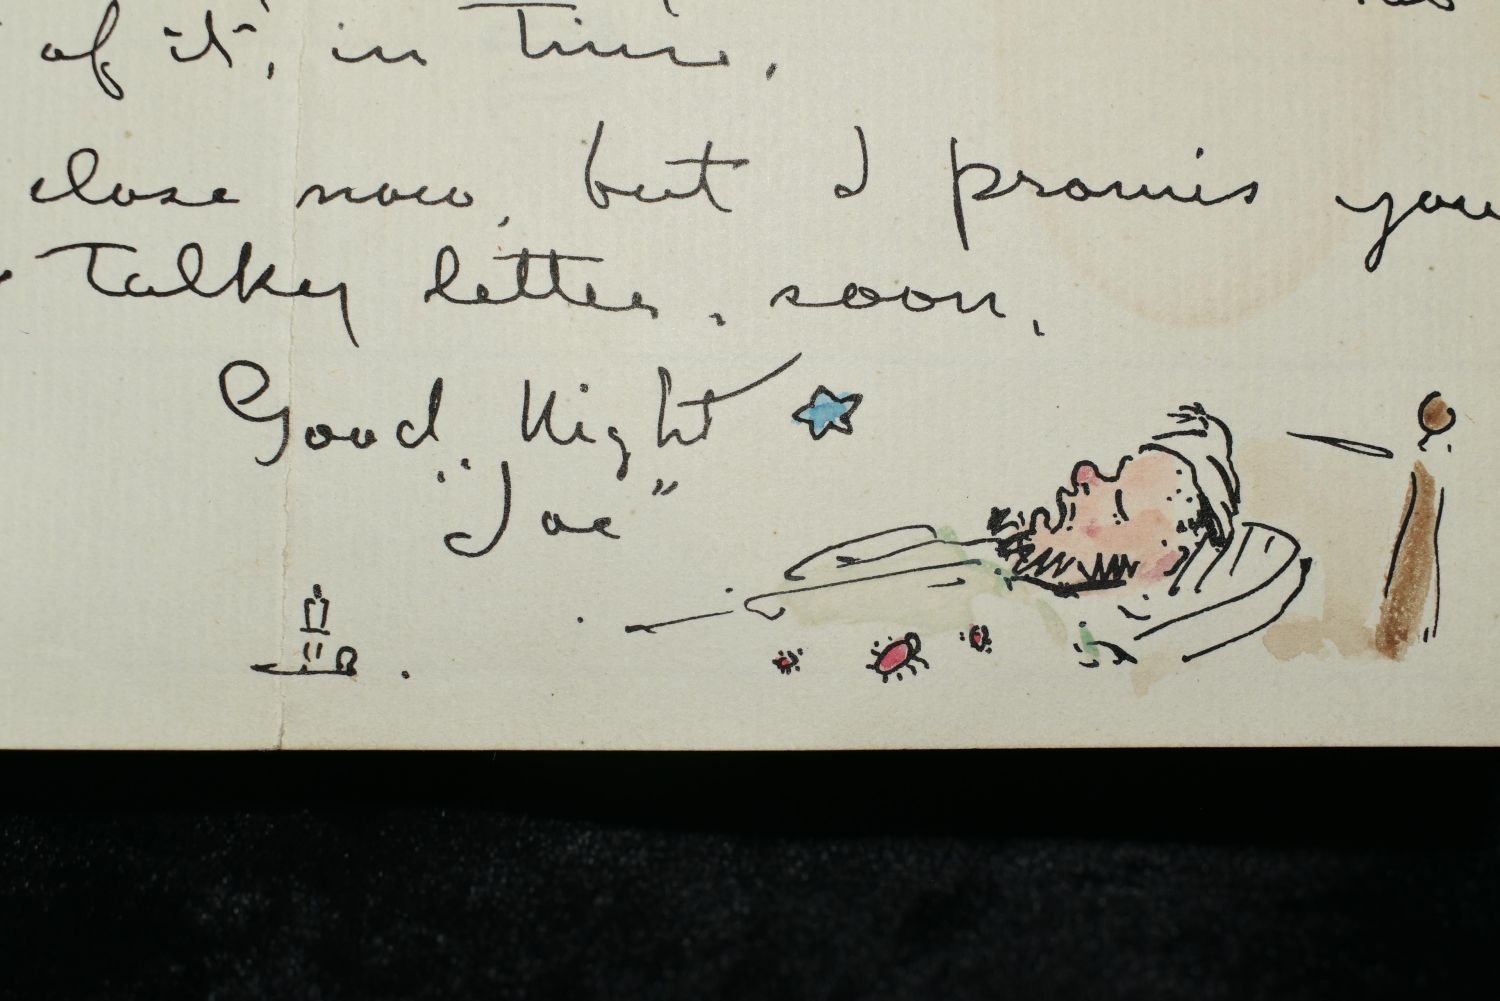 of it, in time.
close now, but I promis you
talky letter, soon.
Good Night
"Joe"